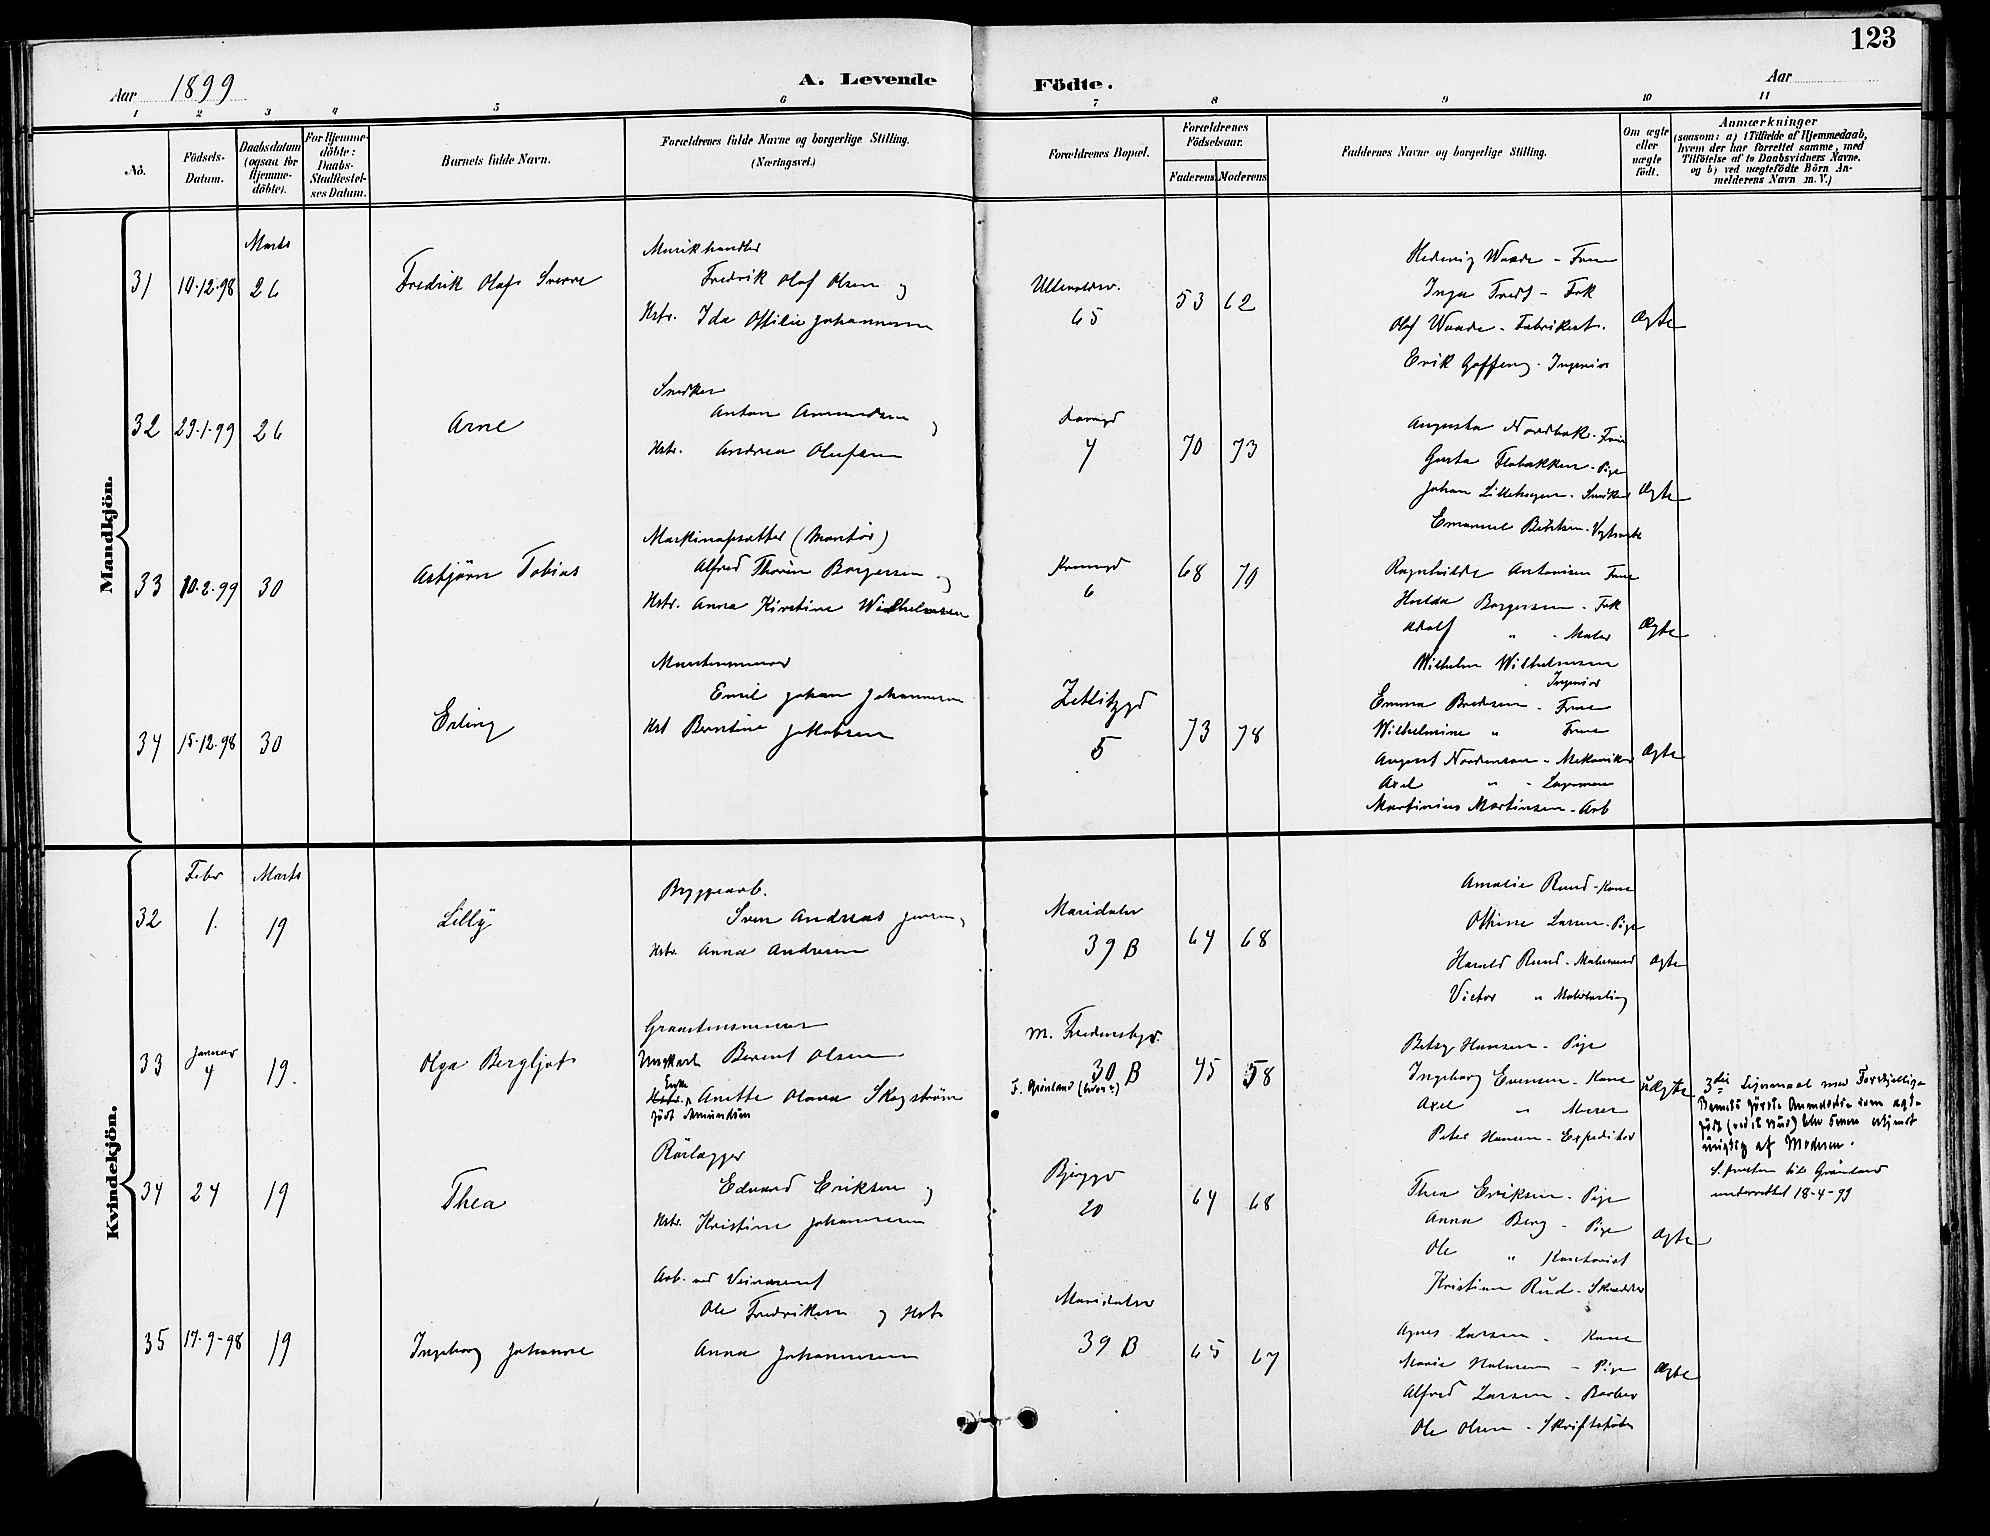 123
Aar 1899
A. Levende Födte.
Aar
1 2 3 4 5 6 7 8 9 10 11
No.
Födsels-Datum.
Daabsdatum (ogsaa for Hjemme-döbte).
For Hjemme-döbte: Daabs-Stadfæstel-ses Datum.
Barnets fulde Navn.
Forældrenes fulde Navne og borgerlige Stilling. (Næringsvei.)
Forældrenes Bopæl.
Forældrenes Födselsaar.
Faderens Moderens
Faddernes Navne og borgerlige Stilling.
Om ægte eller uægte födt.
Anmærkninger
(saasom: a) i Tilfælde af Hjemmedaab, hvem der har forrettet samme, med Tilföielse af to Daabsvidners Navne, og b) ved uægtefödte Börn An-melderens Navn m. V.)
Mandkjön.
Marts
31 10.12.98 26
Fredrik Olaf Sverre
Musikhandler
Fredrik Olaf Olsen og
Hstr. Ida Ottilie Johannesen
Ullevoldsv.
65
53 62
Hedevig Waade - Frue
Inga Tredt - Frk
Olaf Waade - Fabrikant.
Erik Gaffeng - Ingeniør
Ægte
32 29.1.99 26
Arne
Snedker
Anton Amundsen og
Hstr. Andrea Olufsen
4
70 73
Augusta Nordbak - Frue
Gusta Flobakken - Pige
Johan Lillehagen - Snedker
Emanuel Berntsen -
Ægte
33 10.2.99 30
Asbjørn Tobias
Maskinopsætter (Montør)
Alfred Thorin Borgersen og
Hstr. Anna Kirstine Wilhelmsen
6
68 70
Ragnhilde Antonisen Frue
Hulda Borgersen - Frk
Adolf " - Maler
Wilhelm Wilhelmsen
Ingeniør
Ægte
34 15.12.98 30
Erling
Murstensmurer
Emil Johan Johannesen
Hst Berntine Jakobsen
Zetlitzgd
5
73 78
Emma Bredesen - Frue
Wilhelmine " Frue
August Nordenson - Mekaniker
Axel " -
Martinius Martinsen - Arb
Ægte
Kvindekjön.
Febr Marts
32 1. 19
Lilly
Byggearb.
Sven Andreas Jensen,
Hstr. Anna Andresen
Maridalsv
39 B
64 68
Amalie Rund - Kone
Othine Larsen - Pige
Harald Rund - Malersvend
Victor " Malerlærling
Ægte
33 Januar 4 19.
Olga Bergljot
Graastensmurer
Ungkarl Berent Olsen
Enke
Hstr. Anette Olava Skogstrøm
født Amundsen
M. Fredensbgv.
30 B
F. Grønland
45 58
Betsy Hansen - Pige
Ingeborg Evensen - Kone
Axel " Murer
Peter Hansen - Expeditør
uÆgte
3die Leiermaal med Forskjellige
Barnets første Anmeldelse som ægte
født (ved et Bud) blev senere erkjendt
urigtig af Moderen.
S. præsten til Grønland
underrettet 18-4-99
34 24 19
Thea
Rørlægger
Edvard Eriksen og
Hstr. Kristine Johannesen
20
64 68
Thea Eriksen - Pige
Anna Berg - Pige
Ole " Kontorist
Kristian Rud - Skrædder
Ægte
35 17-9-98 19
Ingeborg Johanne
Arb. ved Veivæsenet
Ole Fredriksen og Hstr
Anna Johannesen
Maridalsv
39 B
65 67
Agnes Larsen - Kone
Marie Halvorsen - Pige
Alfred Larsen - Barber
Ole Olsen - Skriftstøber
Ægte